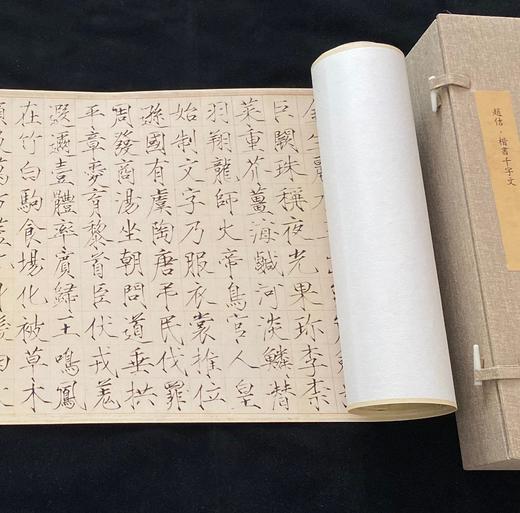 趙佶·楷書千字文
巨闕珠稱夜光果珍李柰
菜重芥薑海鹹河淡鱗潛
羽翔龍師火帝鳥官人皇
始制文字乃服衣裳推位
遜國有虞陶唐弔民伐罪
周發商湯坐朝問道垂拱
平章愛育黎首臣伏戎羌
遐邇壹體率賓歸王鳴鳳
在竹白駒食場化被草木